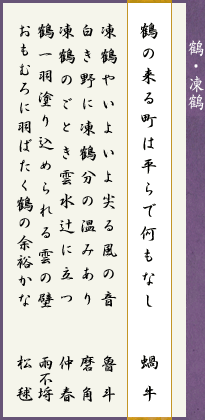 鶴・凍鶴
鶴の来る町は平らで何もなし　蝸牛
凍鶴やいよいよ尖る風の音　魯斗
白き野に凍鶴分の温みあり　磨角
凍鶴のごとき雲水辻に立つ　仲春
鶴一羽塗り込められる雲の壁　雨不埼
おもむろに羽ばたく鶴の余裕かな　松毬